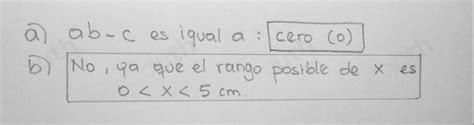 a) ab-c es igual a : cero (0)
b) No, ya que el rango posible de x es
0 < x < 5 cm.